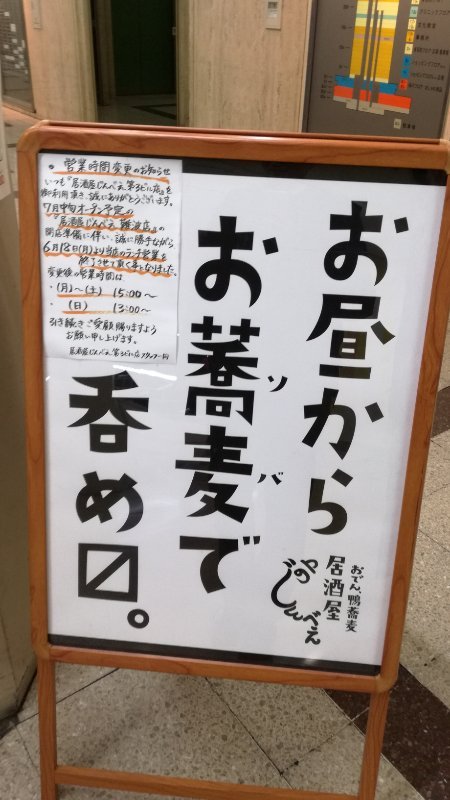 お昼から
お蕎麦で
ソバ
呑め〼。
おでん、鴨蕎麦
居酒屋
じんべえ
・営業時間変更のお知らせ
いつも『居酒屋じんべえ 第3ビル店』を
御利用頂き、誠にありがとうございます。
7月中旬オープン予定の
『居酒屋じんべえ 難波店』の
開店準備に伴い、誠に勝手ながら
6月18日(月)より当店のランチ営業を
終了させて頂く事となりました。
変更後の営業時間は
・(月)〜(土) 15:00〜
・(日) 13:00〜
引き続きご愛顧賜りますよう
お願い申し上げます。
居酒屋じんべえ 第3ビル店 スタッフ一同